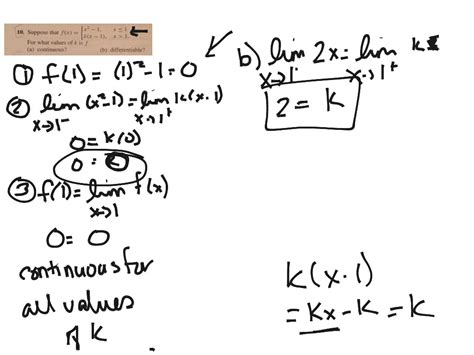 10. Suppose that f(x) = { x² − 1, x ≤ 1
k(x − 1), x > 1.
For what values of k is f
(a) continuous? (b) differentiable?
① f(1) = (1)² - 1 = 0
② lim (x²-1) = lim k(x-1)
x→1⁻ x→1⁺
0 = k(0)
0 = 0
③ f(1) = lim f(x)
x→1
0 = 0
continuous for
all values
of k
b) lim 2x = lim k
x→1⁻ x→1⁺
2 = k
k(x-1)
= kx - k = k